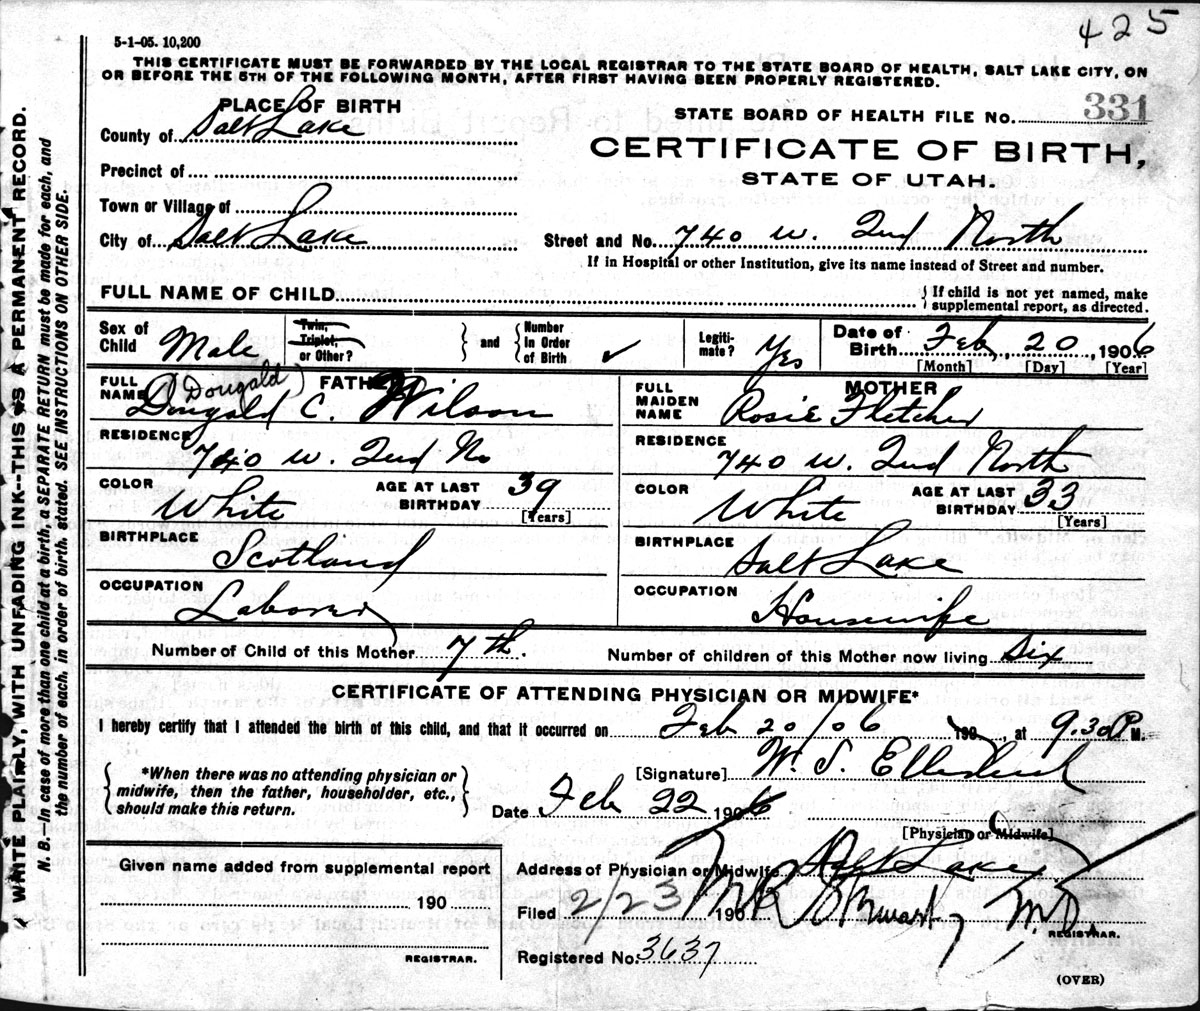 425
5-1-05. 10,200
THIS CERTIFICATE MUST BE FORWARDED BY THE LOCAL REGISTRAR TO THE STATE BOARD OF HEALTH, SALT LAKE CITY, ON
OR BEFORE THE 5TH OF THE FOLLOWING MONTH, AFTER FIRST HAVING BEEN PROPERLY REGISTERED.
PLACE OF BIRTH
County of Salt Lake
Precinct of
Town or Village of
City of Salt Lake
STATE BOARD OF HEALTH FILE No. 331
CERTIFICATE OF BIRTH,
STATE OF UTAH.
Street and No. 740 W. 2nd North
If in Hospital or other Institution, give its name instead of Street and number.
FULL NAME OF CHILD
If child is not yet named, make
supplemental report, as directed.
Sex of Child Male
Twin, Triplet, or Other?
and
Number In Order of Birth ✓
Legiti-mate? Yes
Date of Birth Feb, 20, 1906
[Month] [Day] [Year]
FATHER
FULL NAME (Dougald) Dougald C. Wilson
RESIDENCE 740 W. 2nd No
COLOR White
AGE AT LAST BIRTHDAY 39
[Years]
BIRTHPLACE Scotland
OCCUPATION Laborer
MOTHER
FULL MAIDEN NAME Rosie Fletcher
RESIDENCE 740 W. 2nd North
COLOR White
AGE AT LAST BIRTHDAY 33
[Years]
BIRTHPLACE Salt Lake
OCCUPATION Housewife
Number of Child of this Mother 7th.
Number of children of this Mother now living Six
CERTIFICATE OF ATTENDING PHYSICIAN OR MIDWIFE*
I hereby certify that I attended the birth of this child, and that it occurred on Feb 20/06 190, at 9.30 P. M.
*When there was no attending physician or
midwife, then the father, householder, etc.,
should make this return.
[Signature] W. S.
Date Feb 22 1906
[Physician or Midwife]
Given name added from supplemental report
190
REGISTRAR.
Address of Physician or Midwife Salt Lake
Filed 2/23 190 Stewart, M.D.
REGISTRAR.
Registered No. 3637
(OVER)
WRITE PLAINLY, WITH UNFADING INK--THIS IS A PERMANENT RECORD.
N. B.--In case of more than one child at a birth, a SEPARATE RETURN must be made for each, and
the number of each, in order of birth, stated. SEE INSTRUCTIONS ON OTHER SIDE.